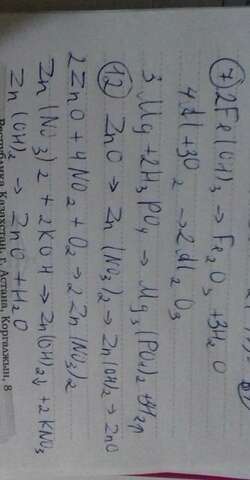 ⑦ 2Fe(OH)3 → Fe2O3 + 3H2O
4Al + 3O2 → 2Al2O3
3Mg + 2H3PO4 → Mg3(PO4)2 +
⑫ ZnO → Zn(NO3)2 → Zn(OH)2 → ZnO
2ZnO + 4NO2 + O2 → 2Zn(NO3)2
Zn(NO3)2 + 2KOH → Zn(OH)2↓ + 2KNO3
Zn(OH)2 → ZnO + H2O
Республика Казахстан, г. Астана, Коргалжын, 8